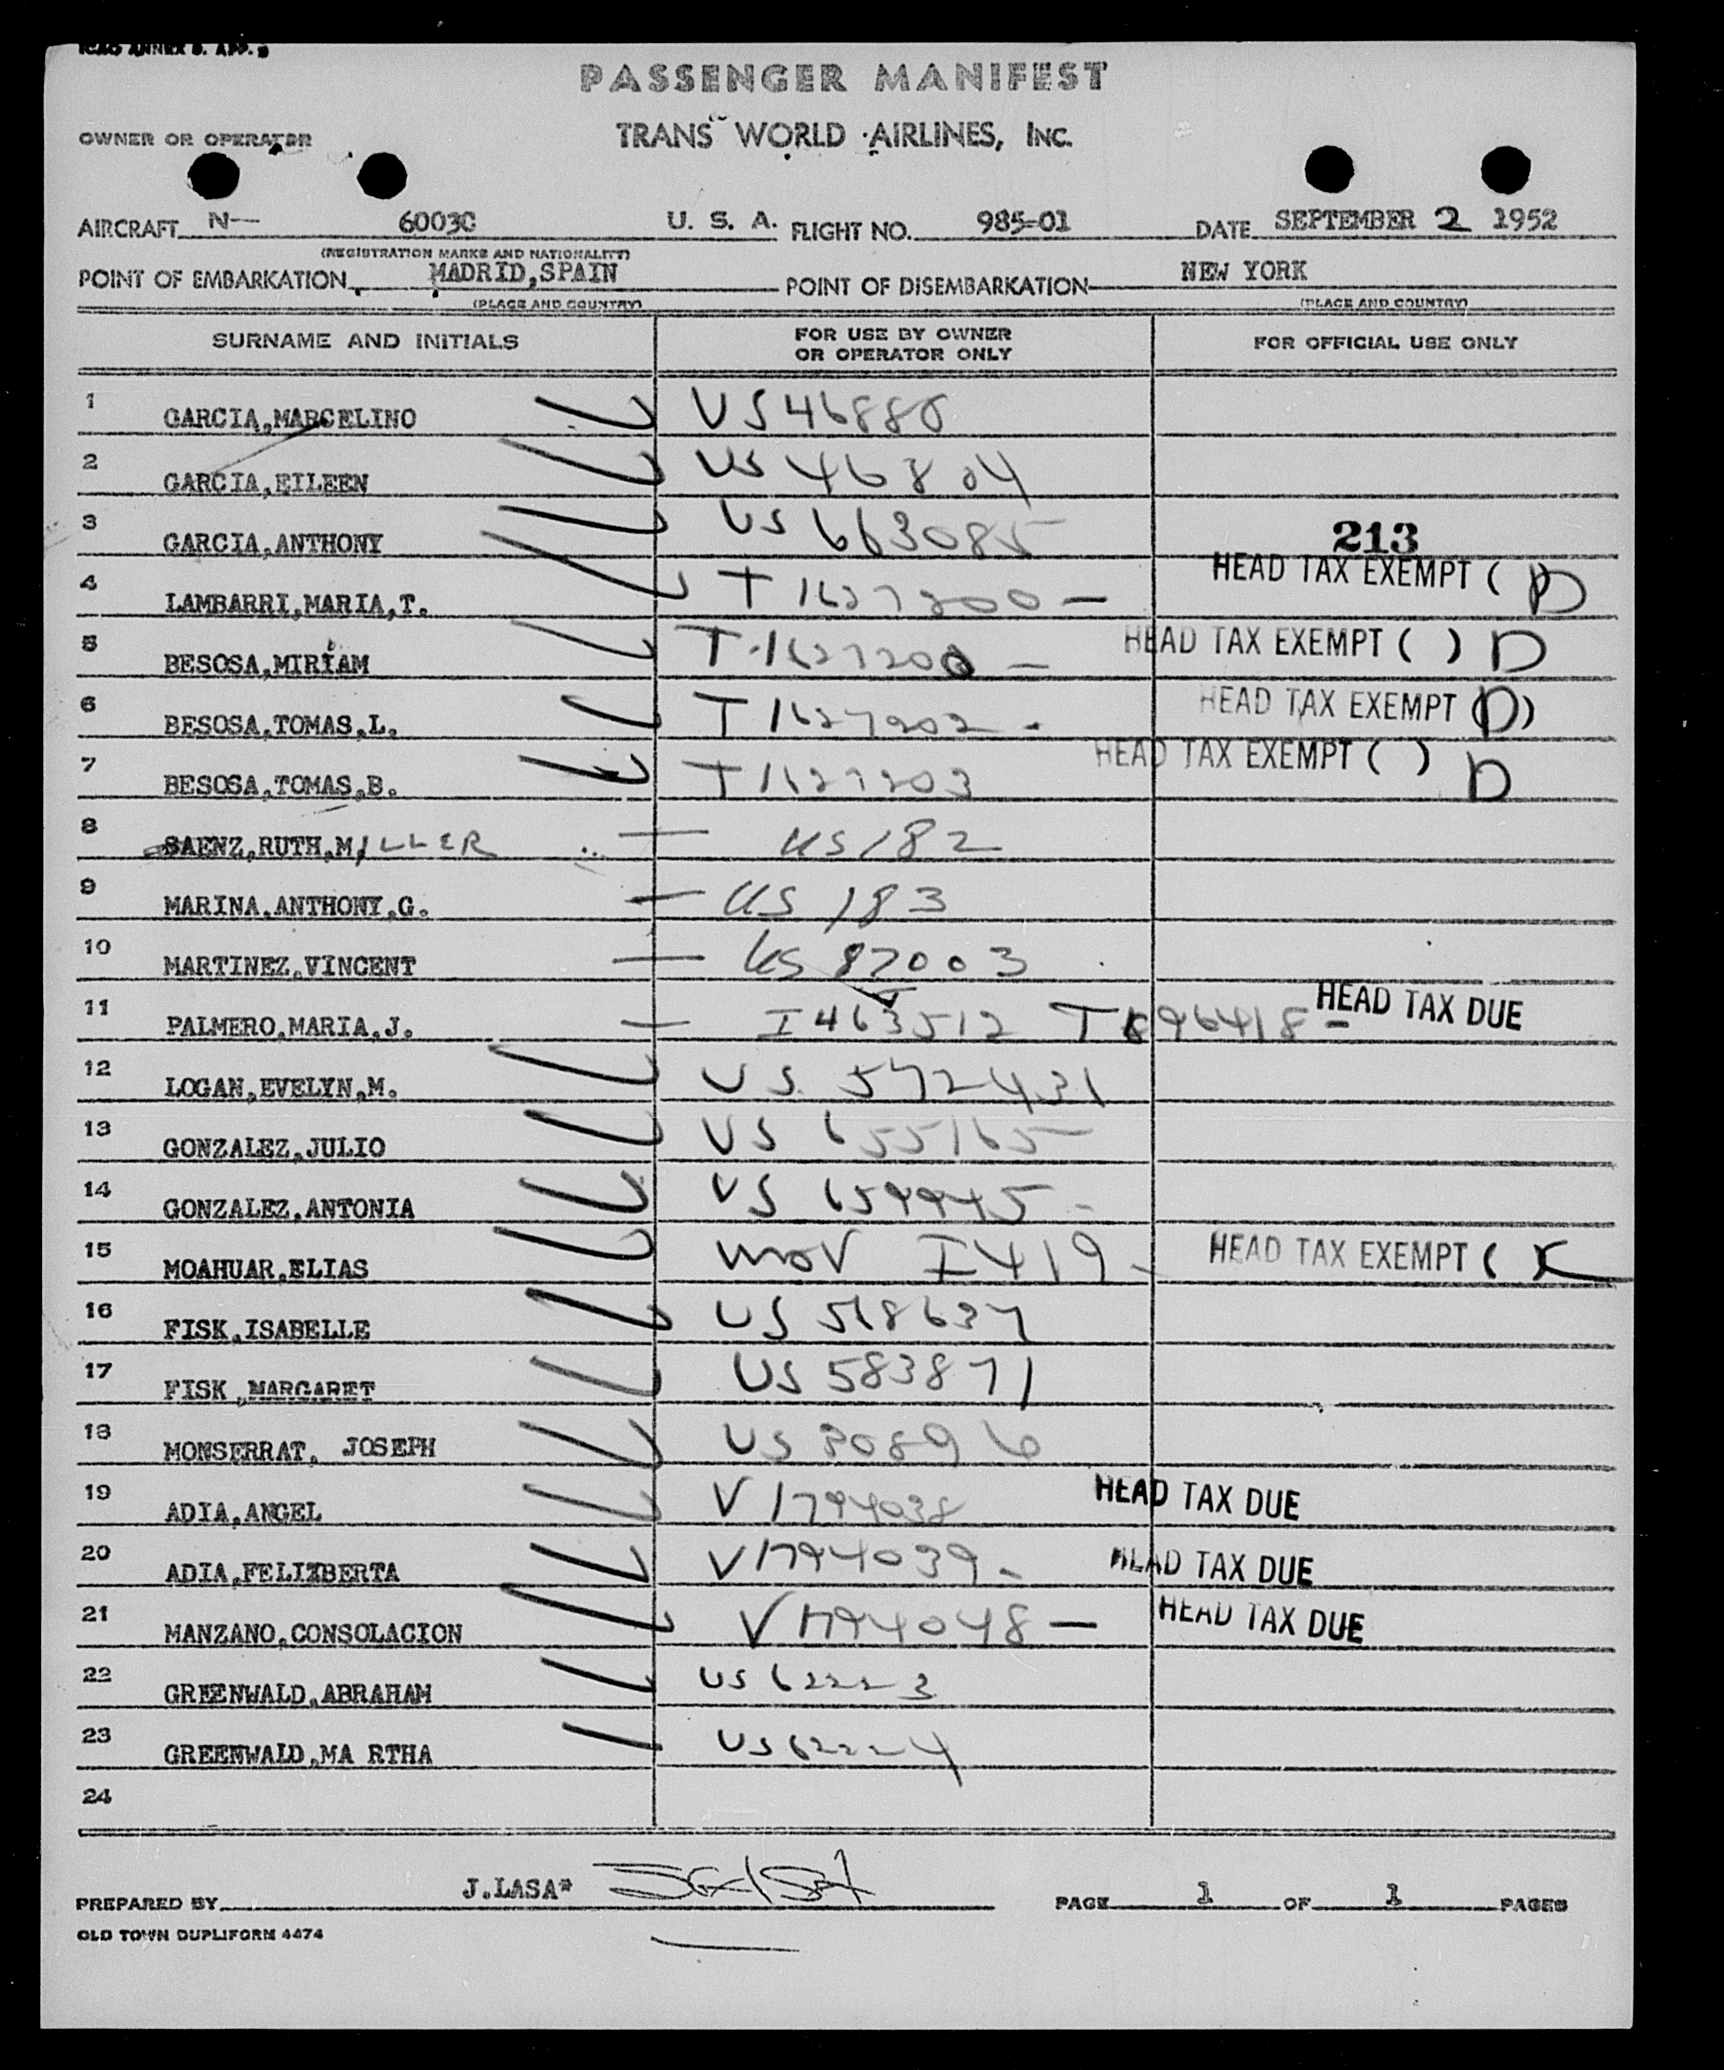 ICAO ANNEX 9. APP. 3
PASSENGER MANIFEST
OWNER OR OPERATOR
TRANS WORLD AIRLINES, INC.
AIRCRAFT N— 6003C U. S. A. FLIGHT NO. 985-01 DATE SEPTEMBER 2 1952
(REGISTRATION MARKS AND NATIONALITY)
POINT OF EMBARKATION MADRID,SPAIN POINT OF DISEMBARKATION NEW YORK
(PLACE AND COUNTRY) (PLACE AND COUNTRY)
SURNAME AND INITIALS FOR USE BY OWNER OR OPERATOR ONLY FOR OFFICIAL USE ONLY
1 GARCIA,MARCELINO US 46880
2 GARCIA,EILEEN US 46804
3 GARCIA,ANTHONY US 663085 213
4 LAMBARRI,MARIA,T. T 1627200 — HEAD TAX EXEMPT ( ) D
5 BESOSA,MIRIAM T.1627200 — HEAD TAX EXEMPT ( ) D
6 BESOSA,TOMAS,L. T 1627202 - HEAD TAX EXEMPT (D)
7 BESOSA,TOMAS,B. T 1627203 HEAD TAX EXEMPT ( ) D
8 SAENZ,RUTH,MILLER — US 182
9 MARINA,ANTHONY,G. — US 183
10 MARTINEZ,VINCENT — US 87003
11 PALMERO,MARIA,J. — I 463512 T 896418 - HEAD TAX DUE
12 LOGAN,EVELYN,M. US 572431
13 GONZALEZ,JULIO US 655165
14 GONZALEZ,ANTONIA US 659945 -
15 MOAHUAR,ELIAS I 419 - HEAD TAX EXEMPT (
16 FISK,ISABELLE US 518637
17 FISK,MARGARET US 583871
18 MONSERRAT, JOSEPH US 30896
19 ADIA,ANGEL V1794038 HEAD TAX DUE
20 ADIA,FELIZBERTA V1794039 - HEAD TAX DUE
21 MANZANO,CONSOLACION V1794048 — HEAD TAX DUE
22 GREENWALD,ABRAHAM US 62223
23 GREENWALD,MA RTHA US 62224
24
PREPARED BY J.LASA* PAGE 1 OF 1 PAGES
OLD TOWN DUPLIFORM 4474